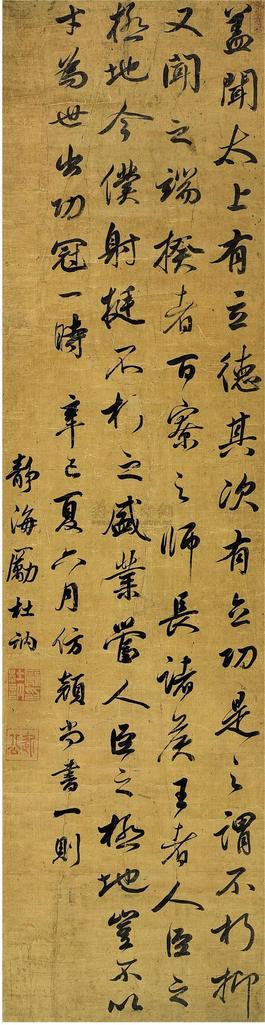 蓋聞太上有立德其次有立功是之謂不朽抑
又聞之端揆者百寮之師長諸侯王者人臣之
極地今僕射挺不朽之盛業當人臣之極地豈不以
才為世出功冠一時 辛巳夏六月仿顏尚書一則
靜海勵杜訥